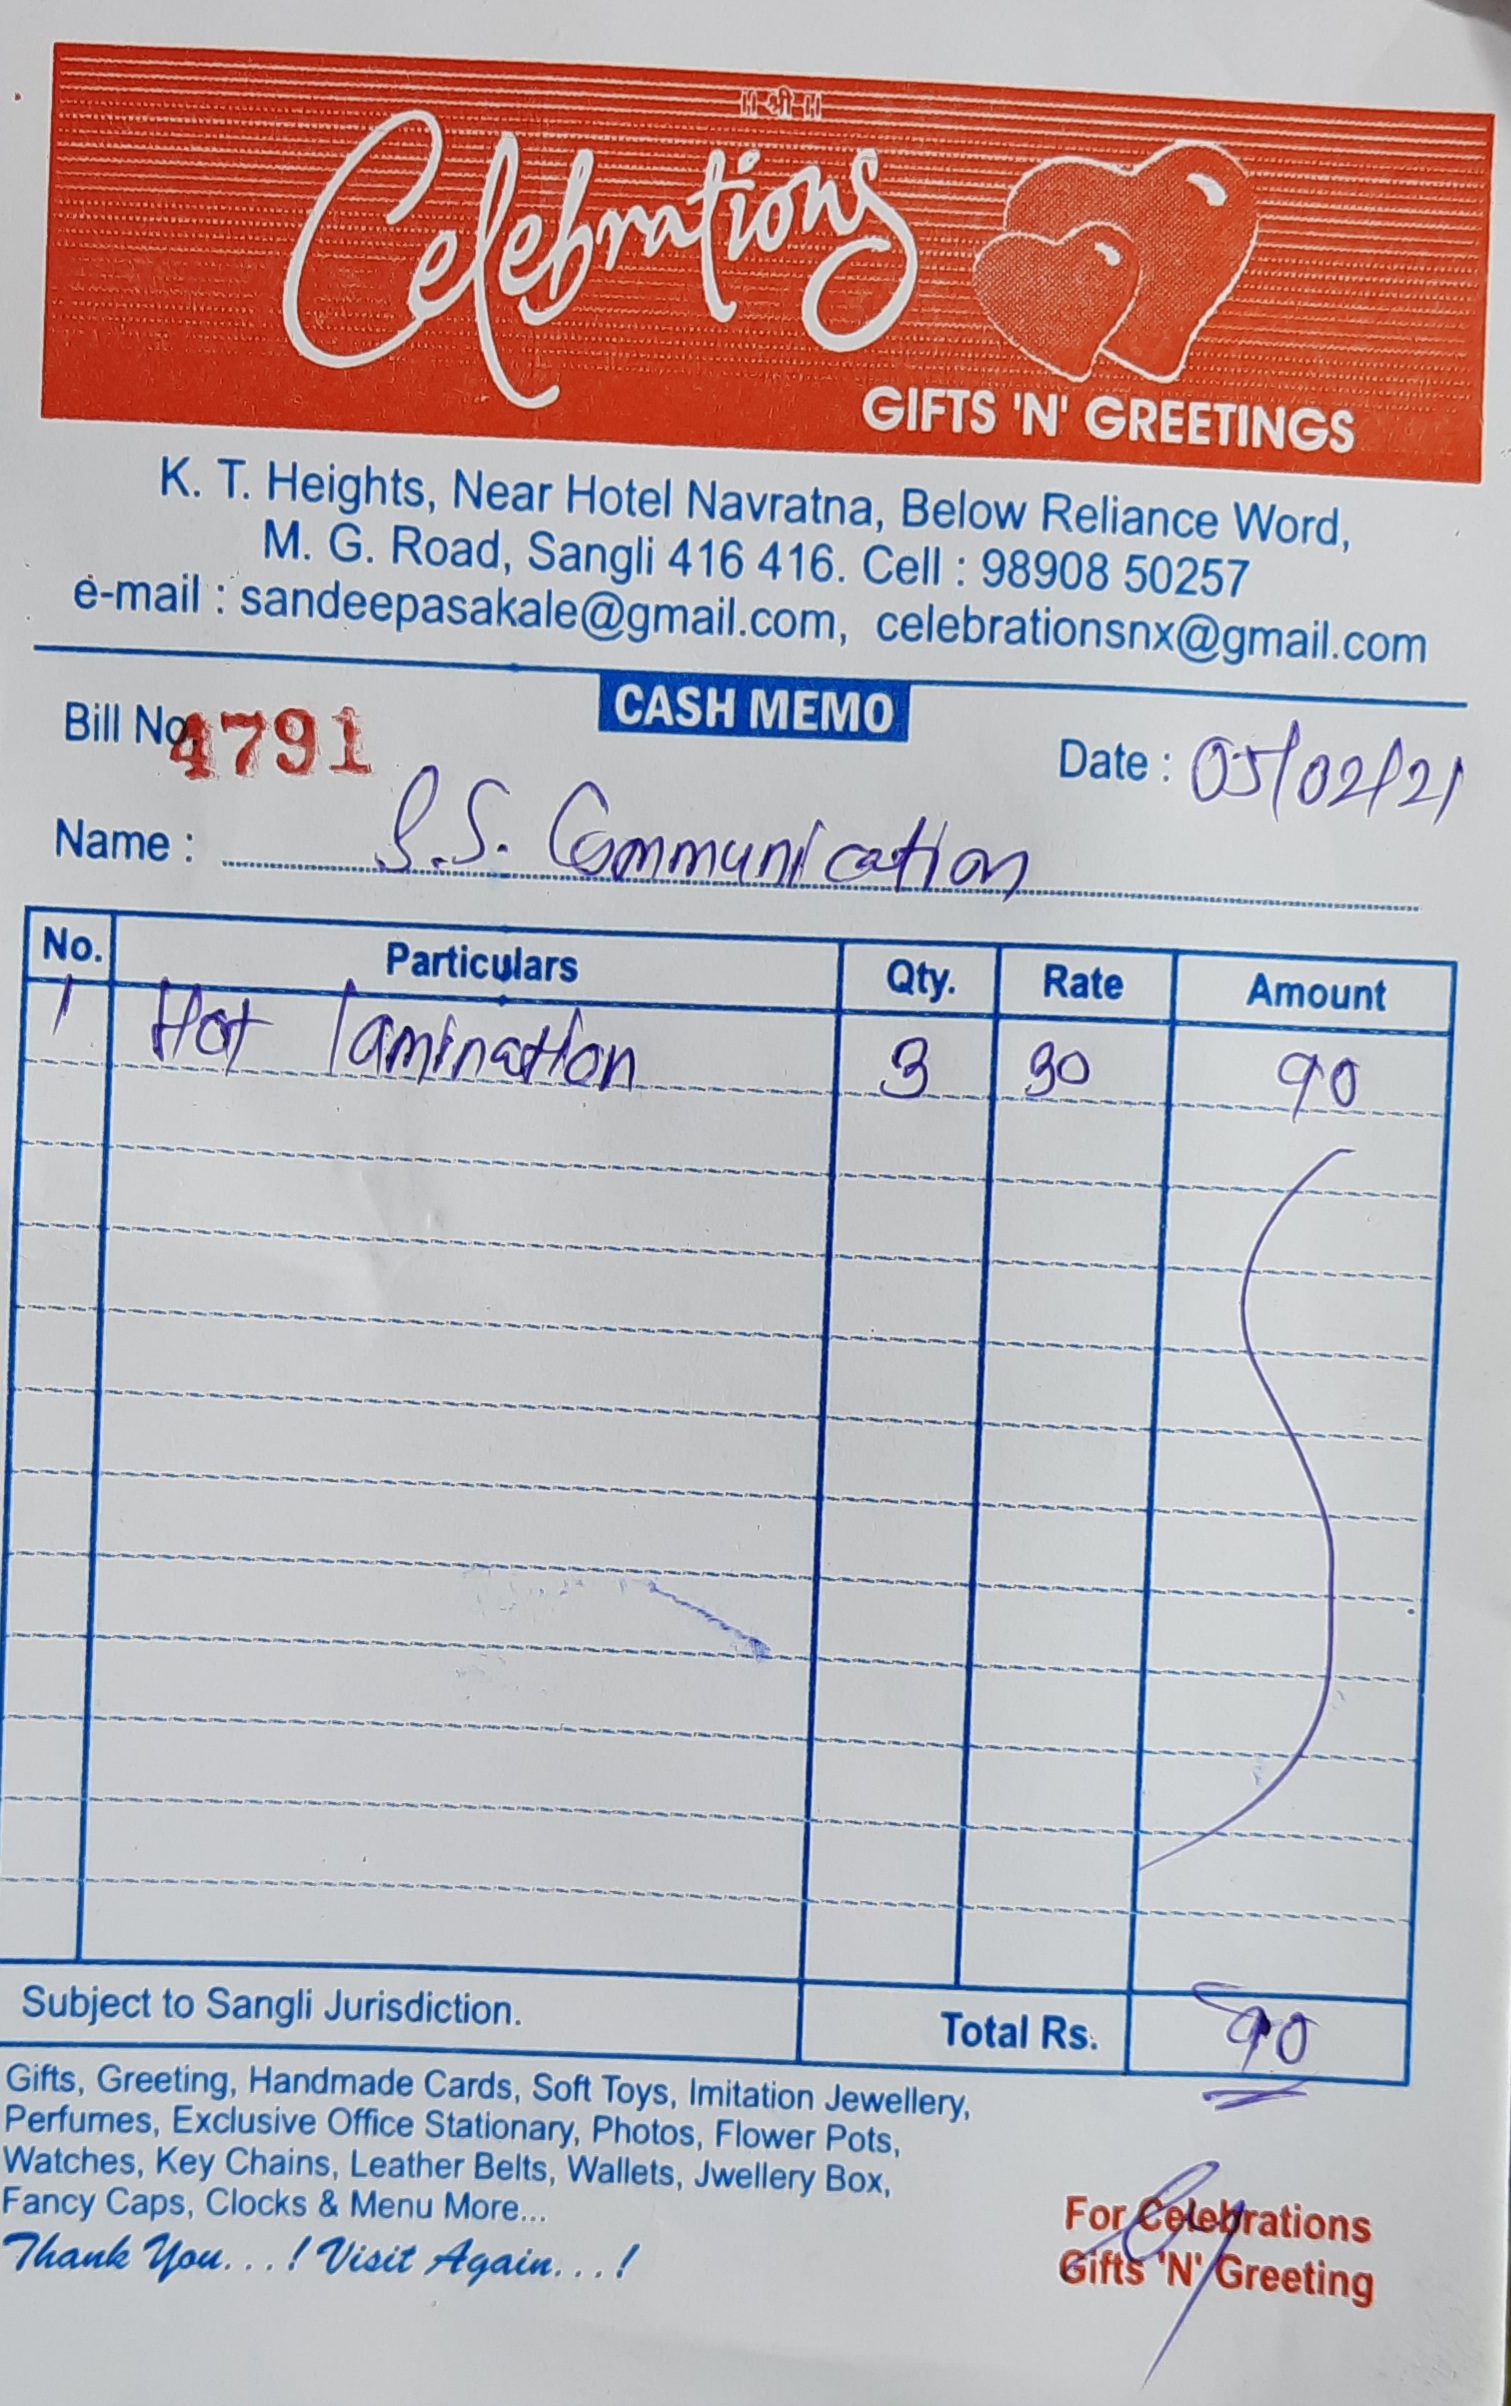 ॥ श्री ॥
Celebrations
GIFTS 'N' GREETINGS
K. T. Heights, Near Hotel Navratna, Below Reliance Word,
M. G. Road, Sangli 416 416. Cell : 98908 50257
e-mail : sandeepasakale@gmail.com, celebrationsnx@gmail.com
CASH MEMO
Bill No. 4791
Date : 05/02/21
Name : S.S. Communication
No. Particulars Qty. Rate Amount
1 Hot lamination 3 30 90
Subject to Sangli Jurisdiction. Total Rs. 90
Gifts, Greeting, Handmade Cards, Soft Toys, Imitation Jewellery,
Perfumes, Exclusive Office Stationary, Photos, Flower Pots,
Watches, Key Chains, Leather Belts, Wallets, Jwellery Box,
Fancy Caps, Clocks & Menu More...
Thank You...! Visit Again...!
For Celebrations
Gifts 'N' Greeting